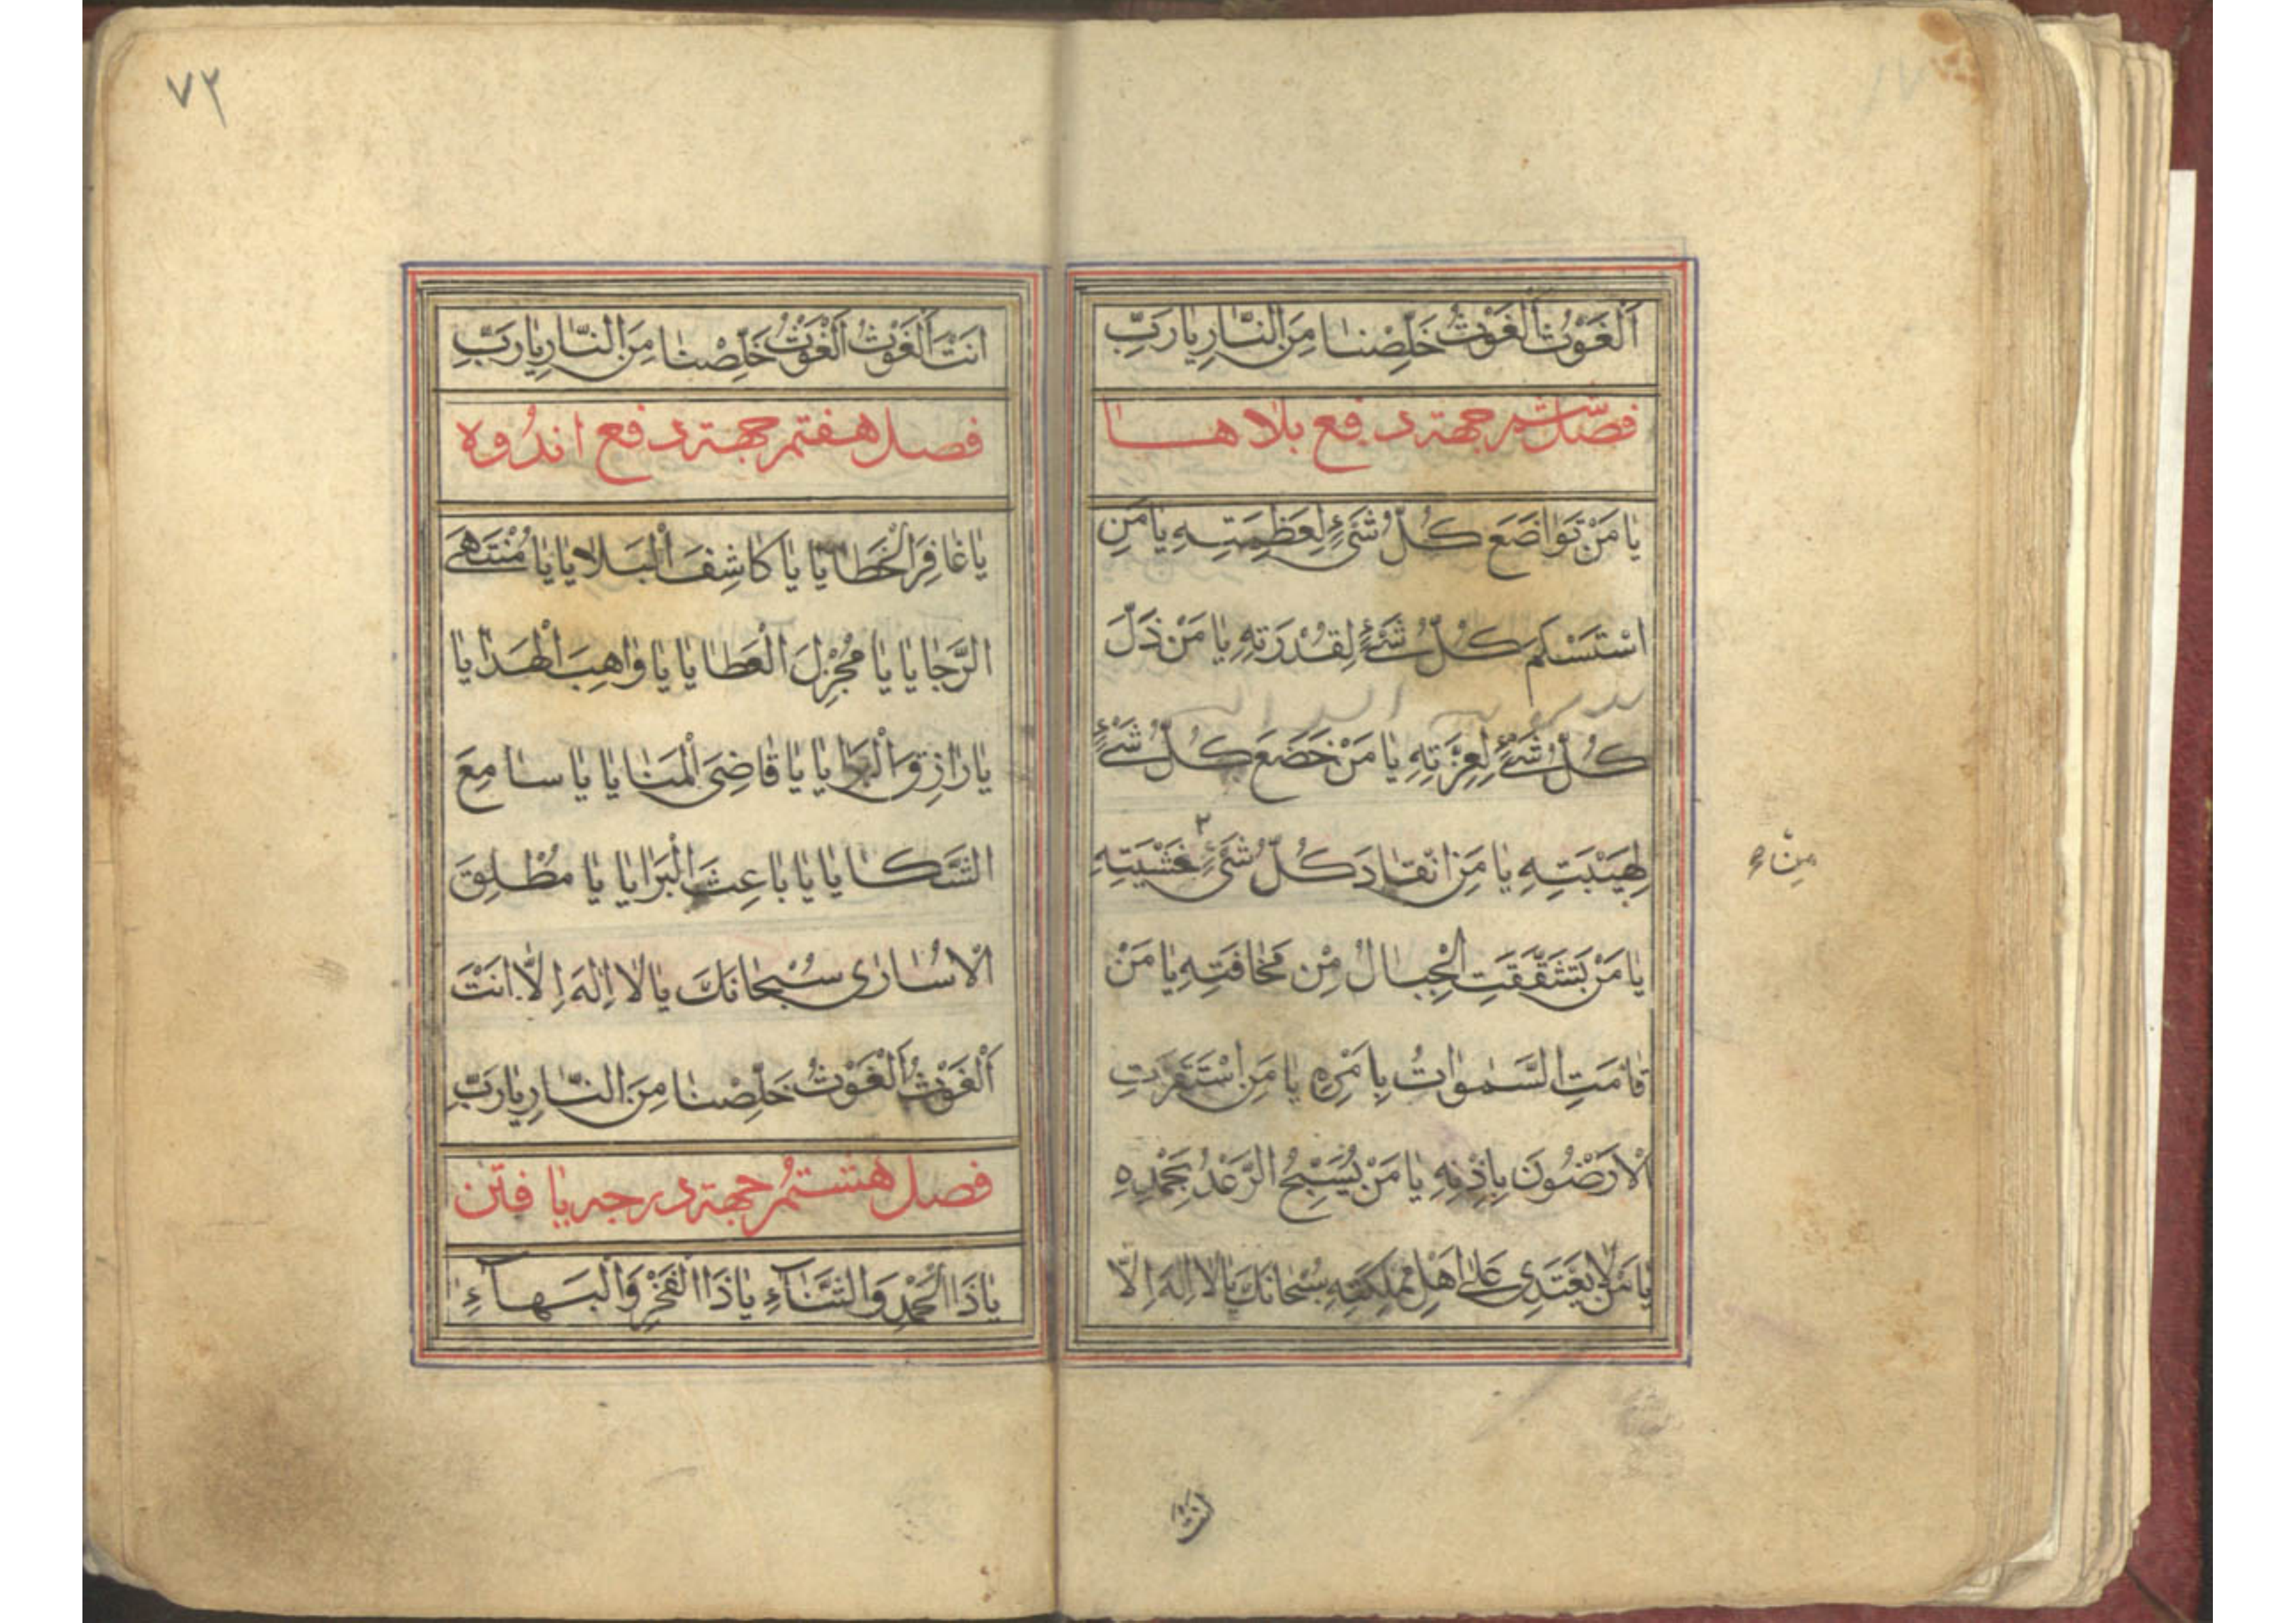 اَلْغَوْثُ اَلْغَوْثُ خَلِّصْنٰا مِنَ النّٰارِ يٰا رَبِّ
فصل ششم جهة دفع بلاها
يٰا مَنْ تَوٰاضَعَ كُلُّ شَیْءٍ لِعَظِمَتِهِ يٰا مَنِ
اسْتَسْكَمَ كُلُّ شَیْءٍ لِقُدْرَتِهِ يٰا مَنْ ذَلَّ
كُلُّ شَیْءٍ لِعِزَّتِهِ يٰا مَنْ خَضَعَ كُلُّ شَیْءٍ
لِهَيْبَتِهِ يٰا مَنِ انْقٰادَ كُلُّ شَیْءٍ خَشْيَتِهِ
مِنْ
يٰا مَنْ تَشَقَّقَتِ الْجِبٰالُ مِنْ مَخٰافَتِهِ يٰا مَنْ
قٰامَتِ السَّمٰوٰاتُ بِاَمْرِهِ يٰا مَنِ اسْتَقَرَّتِ
الْاَرَضُونَ بِاِذْنِهِ يٰا مَنْ يُسَبِّحُ الرَّعْدُ بِحَمْدِهِ
يٰا مَنْ لٰا يَعْتَدِی عَلٰی اَهْلِ مَمْلِكَتِهِ سُبْحٰانَكَ يٰا لٰا اِلٰهَ اِلّٰا
انت
٧٢
انْتَ اَلْغَوْثُ اَلْغَوْثُ خَلِّصْنٰا مِنَ النّٰارِ يٰا رَبِّ
فصل هفتم جهة دفع اندُوه
يٰا غٰافِرَ الْخَطٰايٰا يٰا كٰاشِفَ الْبَلٰايٰا يٰا مُنْتَهَی
الرَّجٰايٰا يٰا مُجْزِلَ الْعَطٰايٰا يٰا وٰاهِبَ الْهَدٰايٰا
يٰا رٰازِقَ الْبَرٰايٰا يٰا قٰاضِیَ الْمَنٰايٰا يٰا سٰامِعَ
الشَّكٰايٰا يٰا بٰاعِثَ الْبَرٰايٰا يٰا مُطْلِقَ
الْاُسٰارٰی سُبْحٰانَكَ يٰا لٰا اِلٰهَ اِلّٰا انْتَ
اَلْغَوْثُ اَلْغَوْثُ خَلِّصْنٰا مِنَ النّٰارِ يٰا رَبِّ
فصل هشتم جهة درجه يٰافتن
يٰا ذَا الْحَمْدِ وَالثَّنٰآءِ يٰا ذَا الْفَخْرِ وَالْبَهٰآءِ